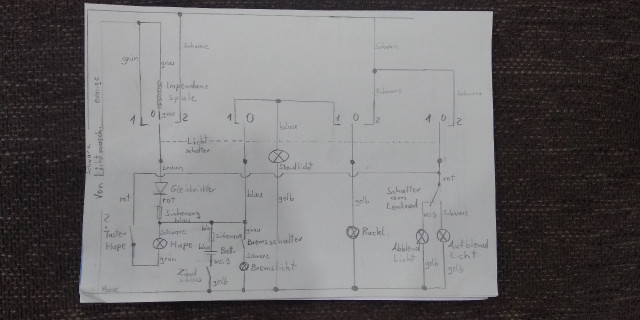 schwarz
grün
grau
schwarz
orange
Impendanz
Spule
schwarz
schwarz
grau
1 0 2
1 0
1 0 2
1 0 2
Von Lichtmasch.
schwarz
Licht
schalter
blau
Standlicht
braun
rot
Gleichrichter
rot
rot
Sicherung
blau
blau
gelb
gelb
Schalter
am
Lenkrad
Taster
Hupe
schwarz
Hupe
grün
blau
blau
Batt.
grau
Bremsschalter
schwarz
Bremslicht
Rückl.
schwarz
Abblend
Licht
Aufblend
Licht
gelb
gelb
Zünd
schloss
gelb
Masse